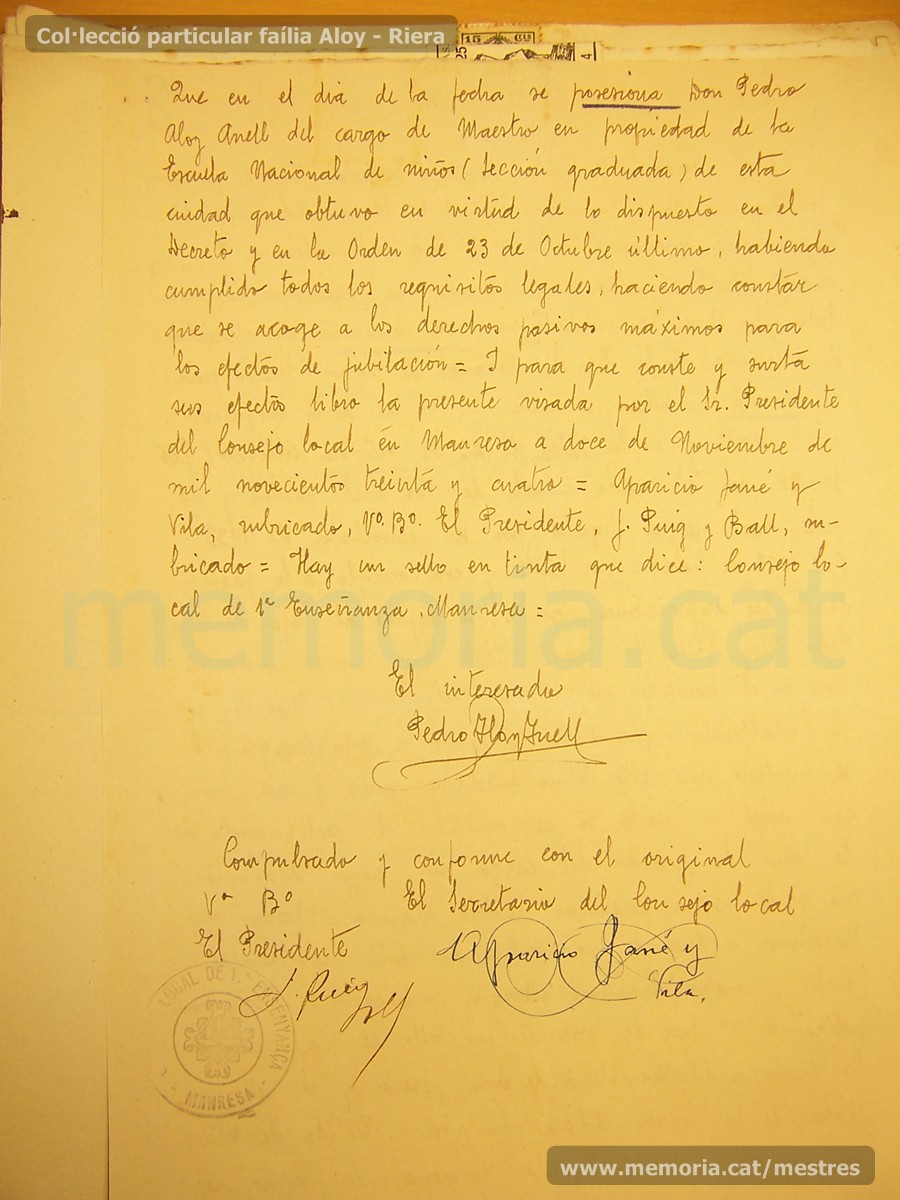 Col·lecció particular faília Aloy - Riera
15 CS
25
Que en el dia de la fecha se posesiona Don Pedro
Aloy Anell del cargo de Maestro en propiedad de la
Escuela Nacional de niños (Sección graduada) de esta
cuidad que obtuvo en virtud de lo dispuesto en el
Decreto y en la Orden de 23 de Octubre último, habiendo
cumplido todos los requisitos legales, haciendo constar
que se acoge a los derechos pasivos máximos para
los efectos de jubilación = I para que conste y surta
sus efectos libro la presente visada por el Sr. Presidente
del Consejo local en Manresa a doce de Noviembre de
mil novecientos treinta y cuatro = Aparicio Jané y
Vila, rubricado, Vº. Bº. El Presidente, J. Puig y Ball, ru-
bricado = Hay un sello en tinta que dice: Consejo lo-
cal de 1ª Enseñanza. Manresa =
memoria.cat
El interesado
Pedro Aloy Anell
Compulsado y conforme con el original
Vº Bº El Secretario del Consejo local
El Presidente Aparicio Jané y
J. Puig Vila.
LOCAL DE 1.ª ENSENYANÇA
· MANRESA ·
www.memoria.cat/mestres